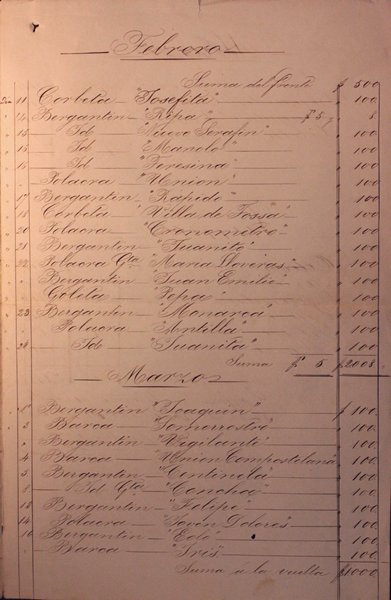 Febrero
Suma del frente $ 500
Dia 11 Corbeta "Josefita" " 100
" 14 Bergantin "Pepa" $ 5 " 8
" 15 " Id "Nuevo Serafin" " 100
" 15 " Id "Manolo" " 100
" 16 " Id "Teresina" " 100
" " Polacra "Union" " 100
" 17 Bergantin "Rapido" " 100
" 18 Corbeta "Villa de Tossa" " 100
" 20 Polacra "Cronometro" " 100
" 21 Bergantin "Juanito" " 100
" 22 Polacra Gta "Maria Lloveras" " 100
" " Bergantin "Juan Emilio" " 100
" " Goleta "Pepa" " 100
" 23 Bergantin "Monarca" " 100
" " Polacra "Antilla" " 100
" 24 " Id "Juanita" " 100
Suma $ 5 $ 2008
Marzo
Bergantin "Joaquin" $ 100
" 3 Barca "Somorrostro" " 100
" " Bergantin "Vigilante" " 100
" 4 Barca "Union Compostelana" " 100
" 5 Bergantin "Centinela" " 100
" 8 " Id Gta "Concha" " 100
" Bergantin "Felipe" " 100
" 14 Polacra "Joven Dolores" " 100
" 16 Bergantin "Eolo" " 100
" " Barca "Iris" " 100
Suma a la vuelta $ 1000